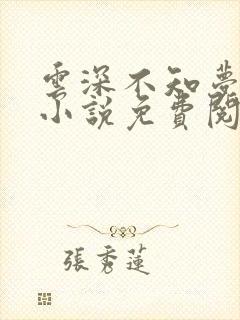 雲深不知夢
小說免費閱
張秀蓮